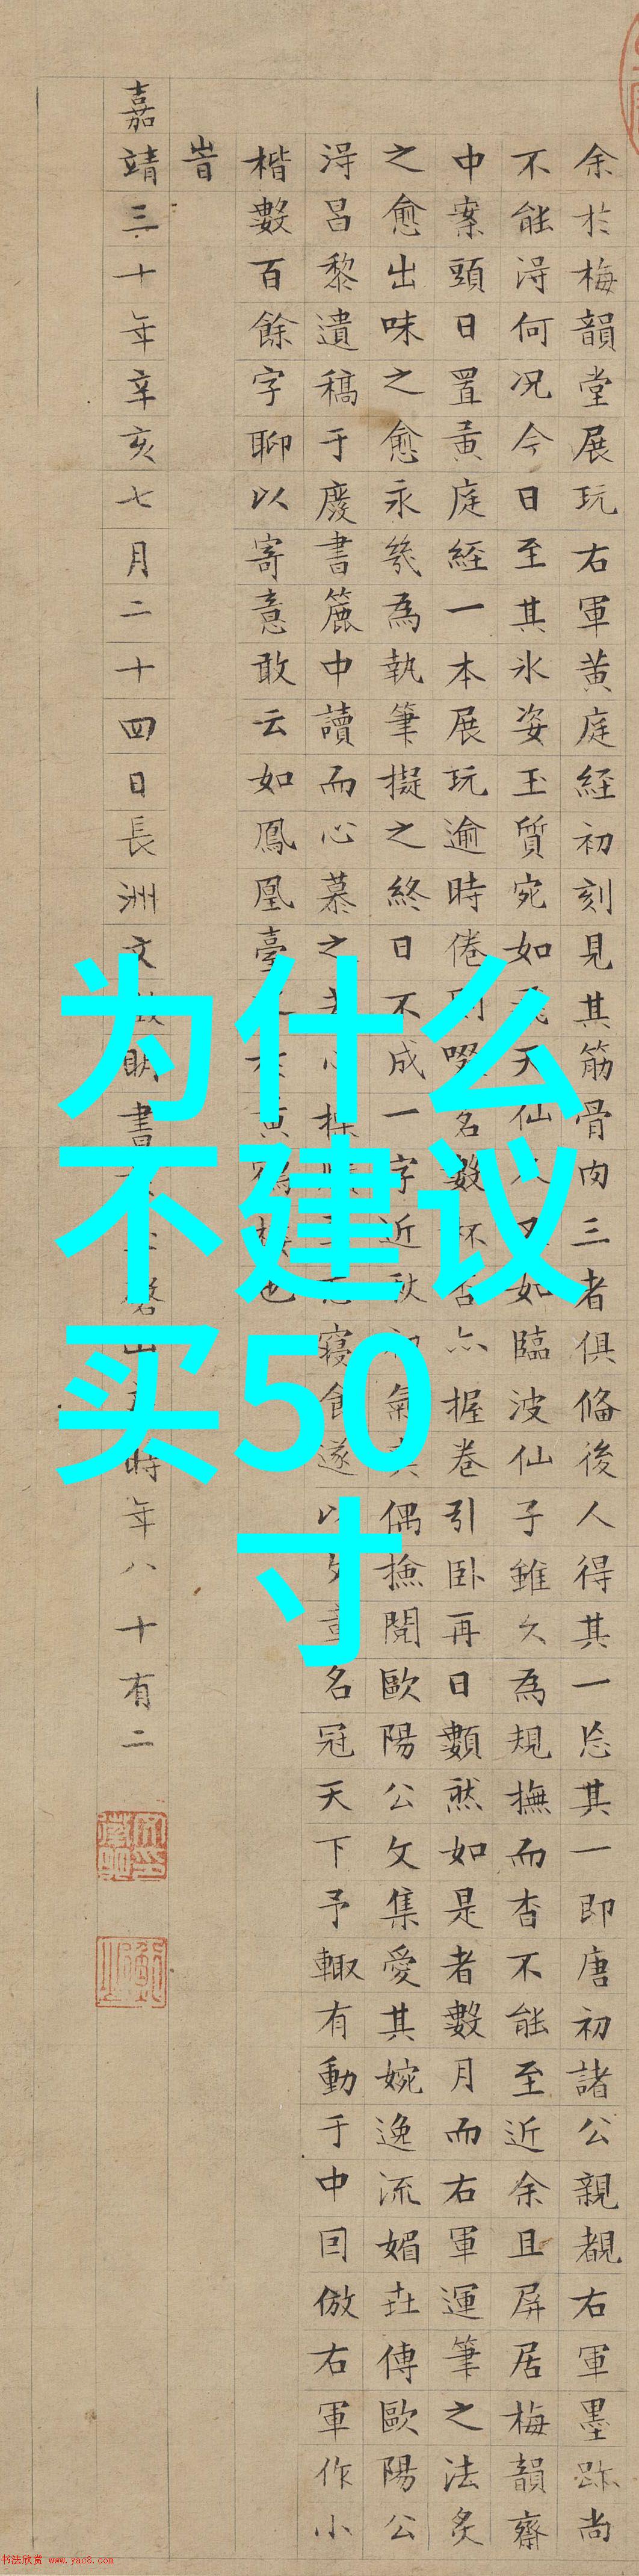 为什么
不建议
买50
寸
余於梅韻堂展玩右軍黄庭経初刻見其筋骨肉三者俱俻後人得其一忘其一即唐初諸公親覩右軍墨跡尚
不能淂何况今日至其氷姿玉質宛如天仙如臨波仙子雖久為規撫而杳不能至近余且屏居梅韻齋
中案頭日置黄庭経一本展玩逾時倦則啜茗數杯否亦握卷引卧再日數然如是者數月而右軍運筆之法炙
之愈出味之愈永幾為執筆擬之終日不成一字近秋初氣爽偶撿閲歐陽公文集愛其婉逸流媚傳歐陽公
淂吕黎遺稿于廢書簏中讀而心慕之心寢食遂以文章名冠天下予輙有動于中回倣右軍作小
楷數百餘字聊以寄意敢云如鳳凰臺之於黄鶴樓也
旹
嘉靖三十年辛亥七月二十四日長洲文徵明書磬山房時年八十有二
书法欣赏 www.yac8.com